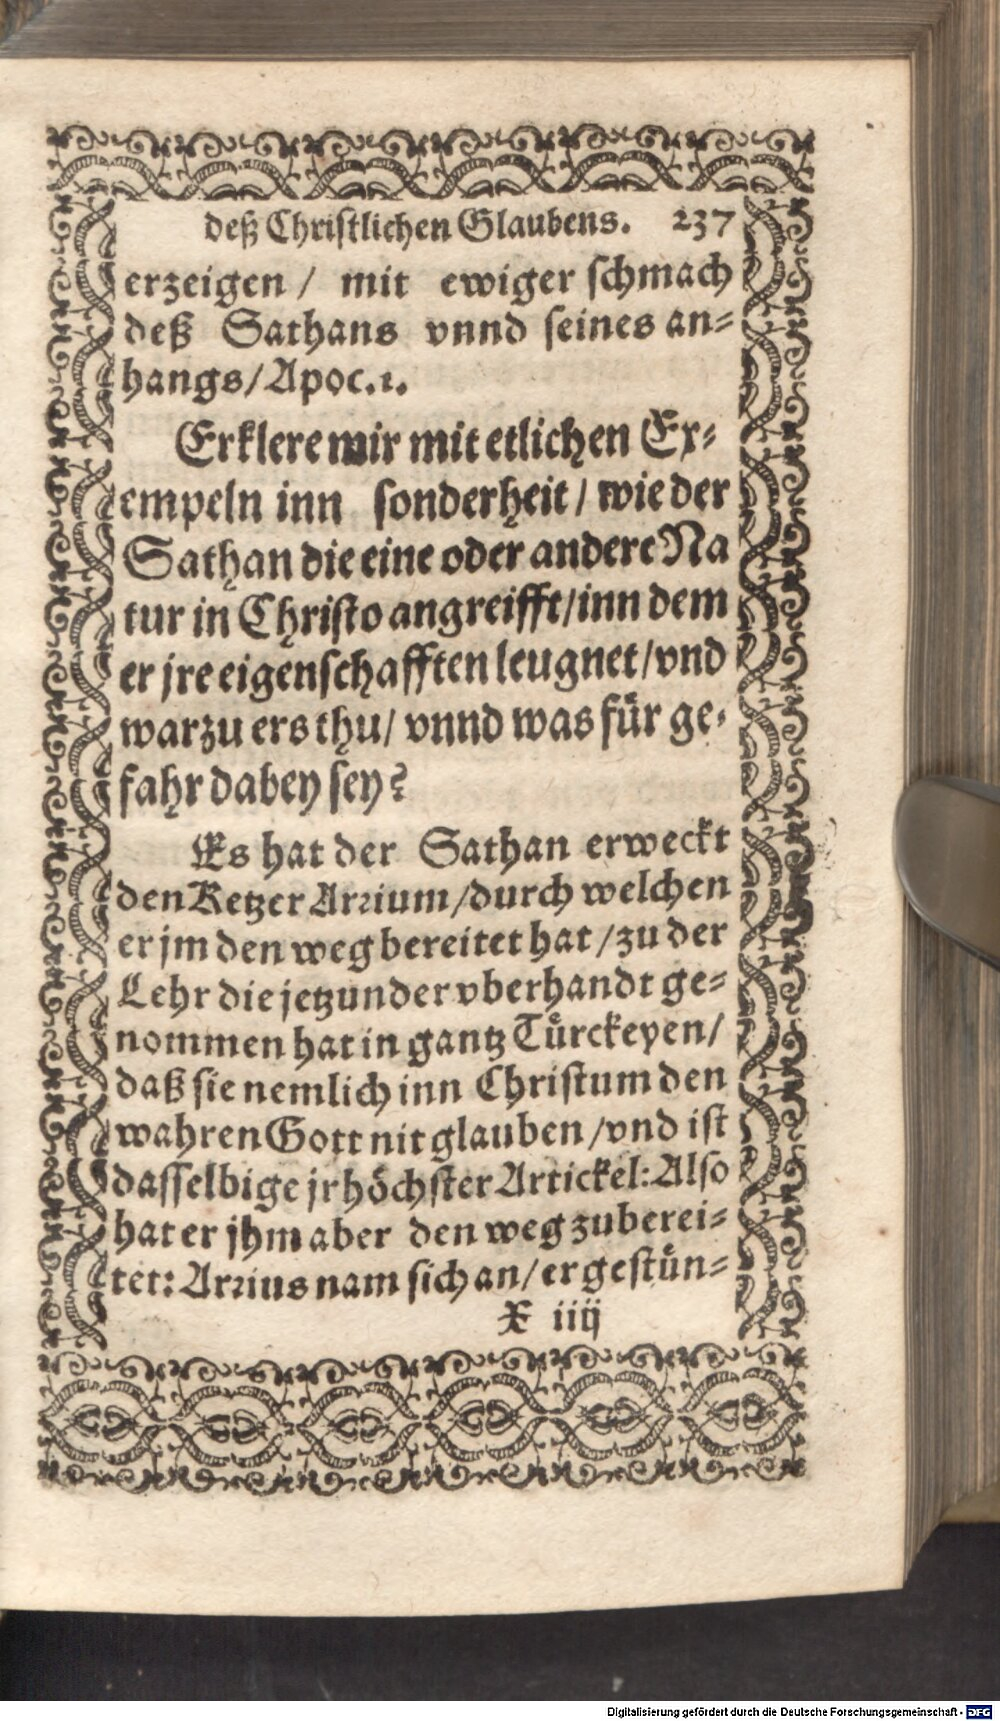 deß Christlichen Glaubens. 237
erzeigen / mit ewiger schmach
deß Sathans vnnd seines an-
hangs / Apoc. 1.
Erklere mir mit etlichen Ex-
empeln inn sonderheit / wie der
Sathan die eine oder andere Na
tur in Christo angreifft / inn dem
er jre eigenschafften leugnet / vnd
warzu ers thu / vnnd was für ge-
fahr dabey sey?
Es hat der Sathan erweckt
den Ketzer Arrium / durch welchen
er jm den weg bereitet hat / zu der
Lehr die jetzunder vberhandt ge-
nommen hat in gantz Türckeyen /
daß sie nemlich inn Christum den
wahren Gott nit glauben / vnd ist
dasselbige jr höchster Artickel: Also
hat er jhm aber den weg zuberei-
tet: Arrius nam sich an / er gestün-
X iiij
Digitalisierung gefördert durch die Deutsche Forschungsgemeinschaft - DFG